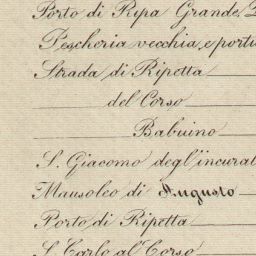 Porto di Ripa Grande,
Pescheria vecchia, e porti
Strada di Ripetta
del Corso
Babuino
S. Giacomo degl'incurat
Mausoleo di Augusto
Porto di Ripetta
S. Carlo al Corso